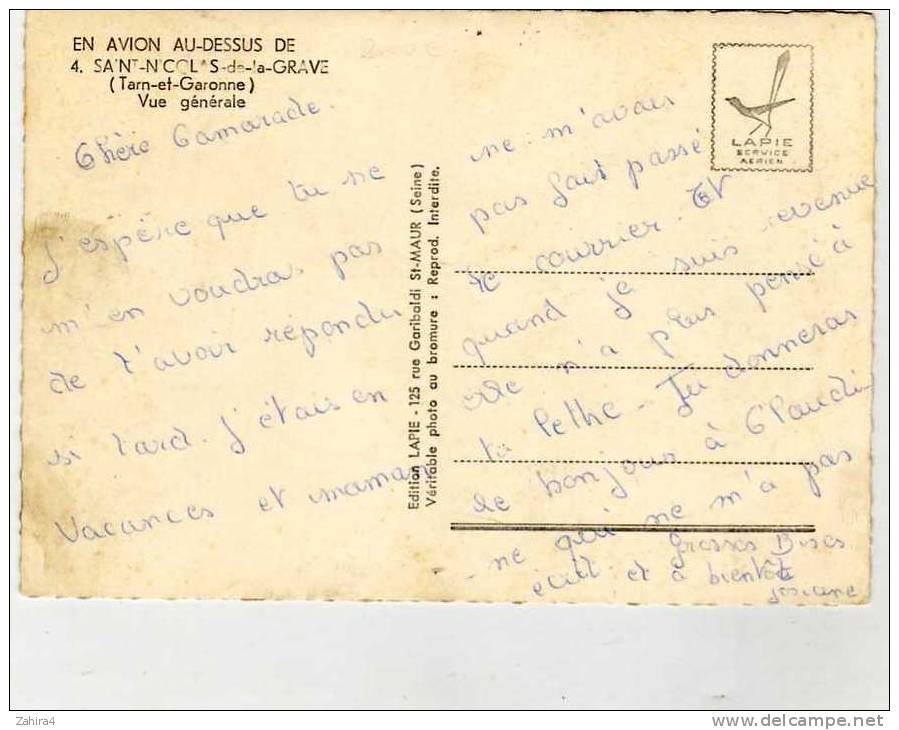 EN AVION AU-DESSUS DE
4. SAINT-NICOLAS-de-la-GRAVE
(Tarn-et-Garonne)
Vue générale
Chère Camarade.
J'espère que tu ne
m'en voudras pas
de t'avoir répondu
si tard. J'étais en
Vacances et maman
Edition LAPIE - 125 rue Garibaldi St-MAUR (Seine)
Véritable photo au bromure : Reprod. Interdite.
LAPIE
SERVICE
AERIEN
ne m'avais
pas fait passé
le courrier. Et
quand je suis revenue
elle n'a plus pensé à
ta lethe - Tu donneras
le bonjour à Claudi-
ne qui ne m'a pas
écrit et à bientôt
grosses Bises
Josiane
Zahira4
www.delcampe.net